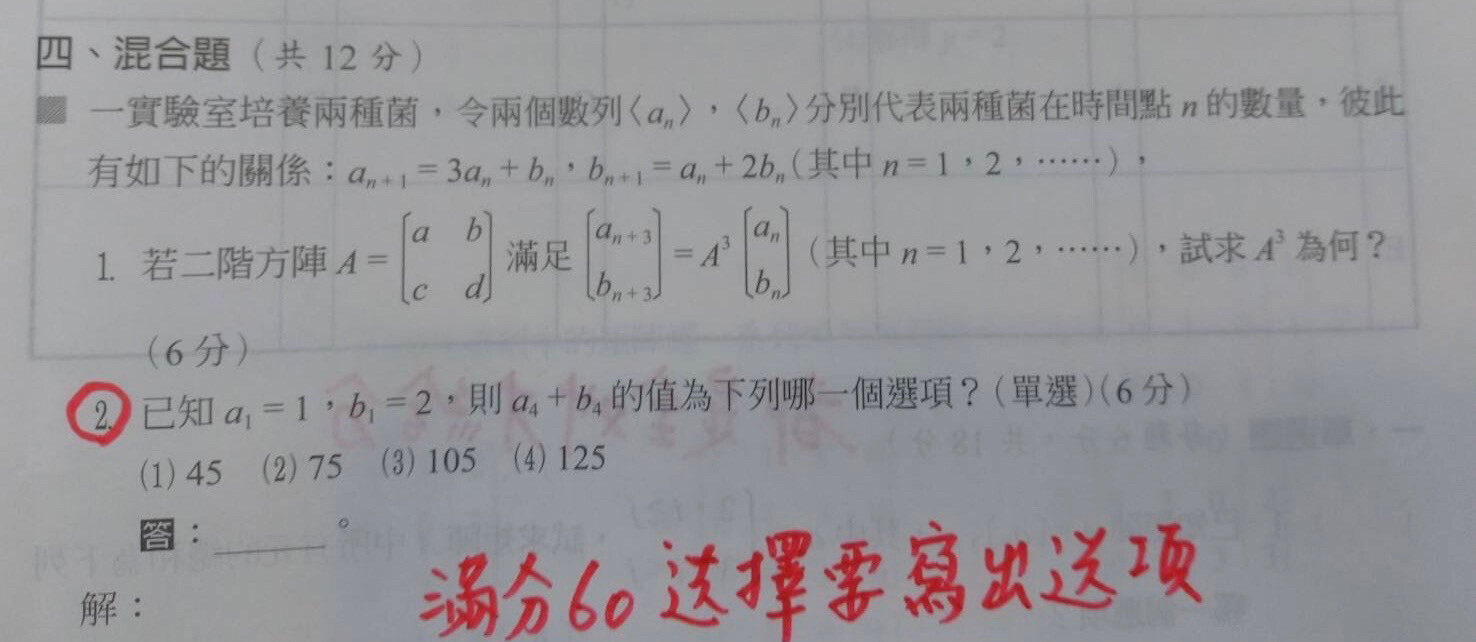 四、混合題（共 12 分）
一實驗室培養兩種菌，令兩個數列〈aₙ〉，〈bₙ〉分別代表兩種菌在時間點 n 的數量，彼此
有如下的關係：aₙ₊₁ = 3aₙ + bₙ，bₙ₊₁ = aₙ + 2bₙ（其中 n = 1，2，……），
1. 若二階方陣 A = [a b; c d] 滿足 [aₙ₊₃; bₙ₊₃] = A³ [aₙ; bₙ]（其中 n = 1，2，……），試求 A³ 為何？
（6 分）
2. 已知 a₁ = 1，b₁ = 2，則 a₄ + b₄ 的值為下列哪一個選項？（單選）（6 分）
(1) 45 (2) 75 (3) 105 (4) 125
答：＿＿＿。
解：
滿分60 送擇要寫出送項